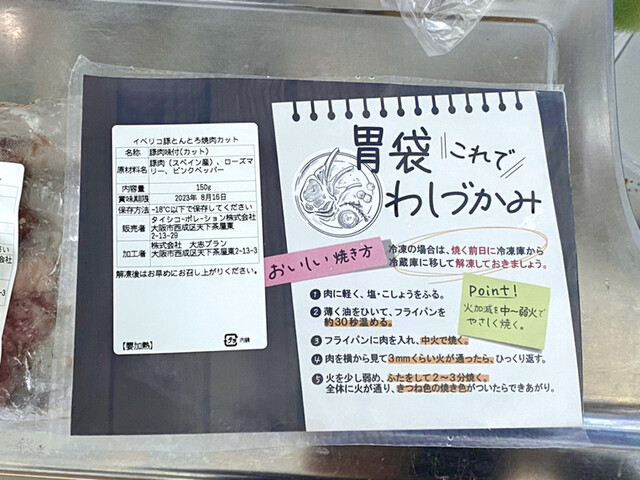 イベリコ豚とんとろ焼肉カット
名称 豚肉味付(カット)
原材料名 豚肉(スペイン産)、ローズマリー、ピンクペッパー
内容量 150g
賞味期限 2023年 8月16日
保存方法 -18℃以下で保存してください
販売者 タイシコーポレーション株式会社
大阪市西成区天下茶屋東
2-13-29
加工者 株式会社 大志プラン
大阪市西成区天下茶屋東2-13-3
解凍後はお早めにお召し上がりください。
【要加熱】
プラ 内袋
胃袋これで
わしづかみ
おいしい焼き方
冷凍の場合は、焼く前日に冷凍庫から
冷蔵庫に移して解凍しておきましょう。
1 肉に軽く、塩・こしょうをふる。
2 薄く油をひいて、フライパンを
約30秒温める。
3 フライパンに肉を入れ、中火で焼く。
4 肉を横から見て3mmくらい火が通ったら、ひっくり返す。
5 火を少し弱め、ふたをして2〜3分焼く。
全体に火が通り、きつね色の焼き色がついたらできあがり。
Point!
火加減を中〜弱火で
やさしく焼く。